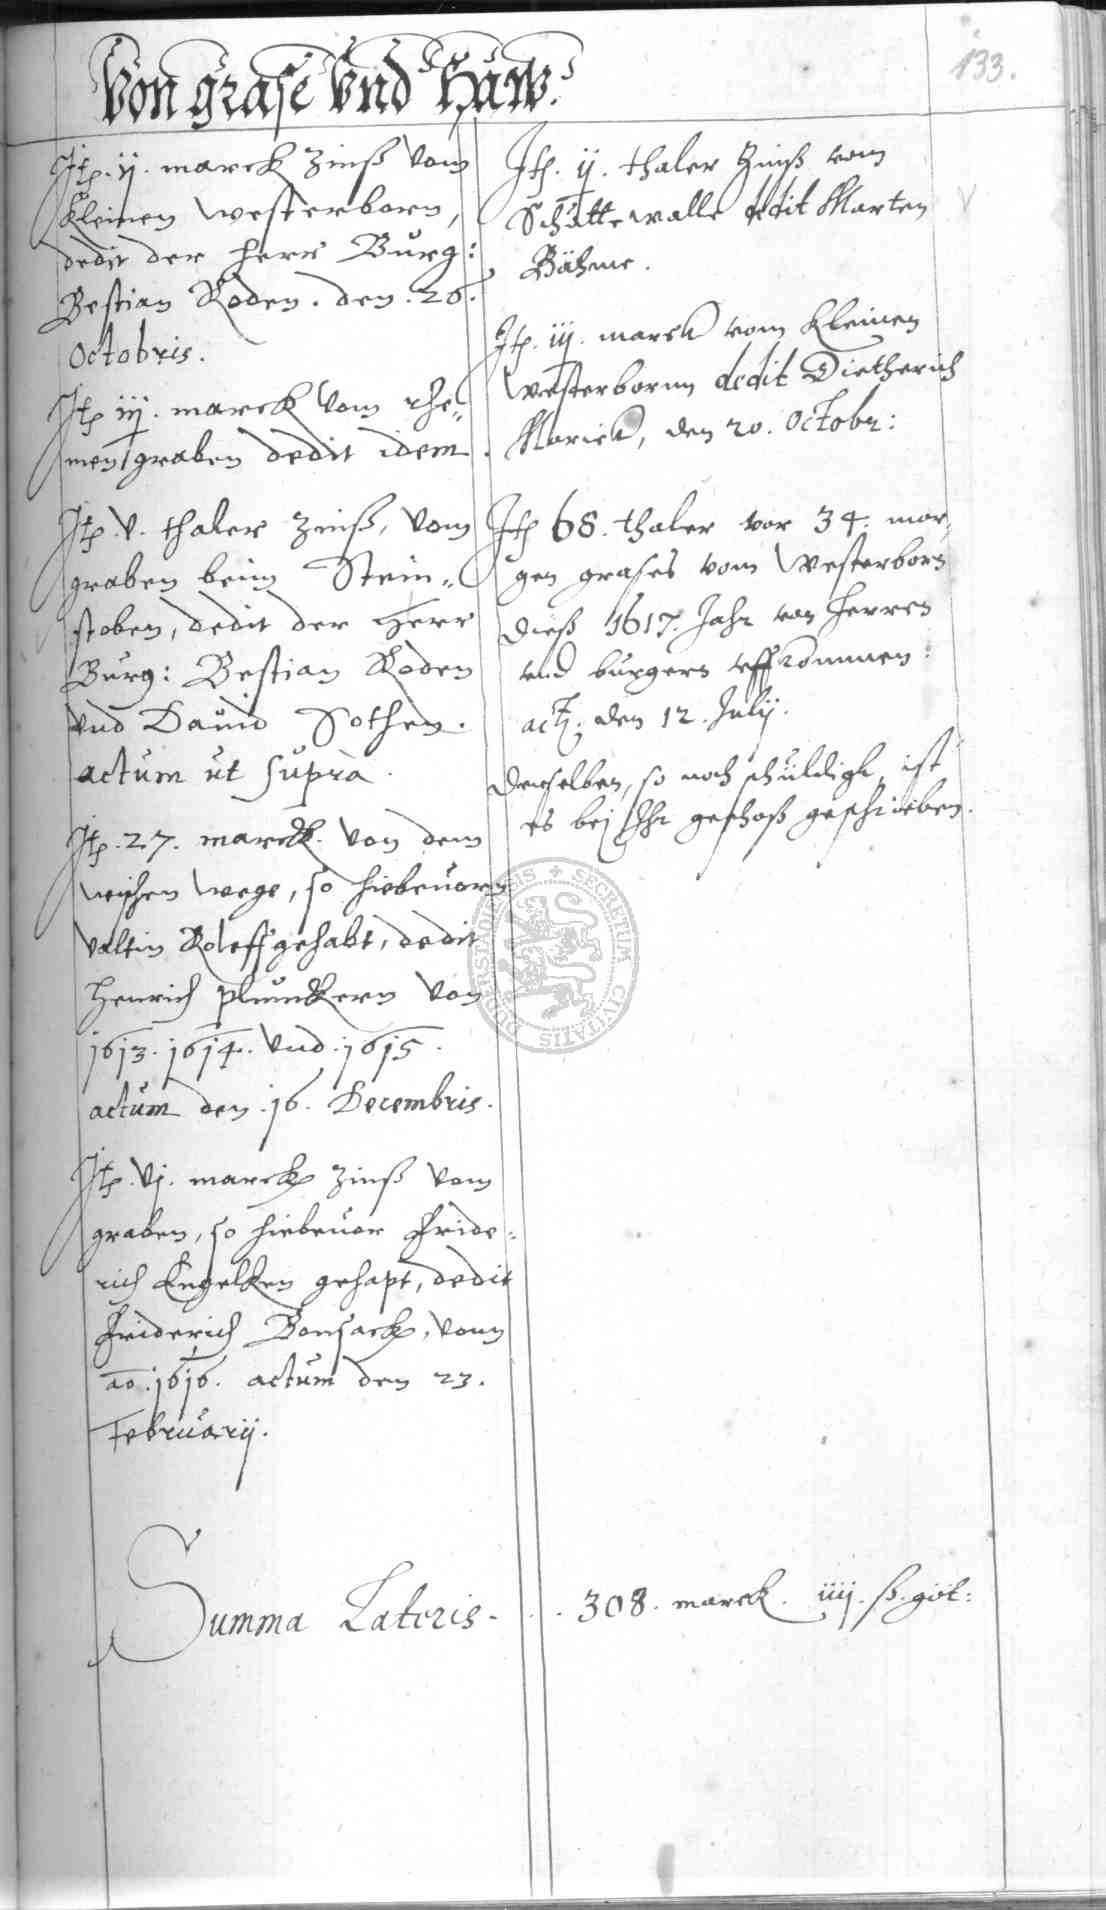 133.
Von grase Vnd Haw.
Itp. ij. marck zinß vom
kleinen Westerborn,
dedit der herr Burg:
Bestian Roden. den. 26.
Octobris.
Itp iij. marck vom rhe„
men graben dedit idem.
Itp. V. thaler zinß, vom
graben beim Stein„
stoben, dedit der Herr
Burg: Bestian Roden
vnd Dauid Sothen.
actum ut supra.
Itp. 27. marck. von dem
wege, so hiebeuorn
Valtin Roleff gehabt, dedit
Henrich plumckern von
1613. 1614. Vnd. 1615.
actum den. 16. Decembris.
Itp. Vj. marck zinß vom
graben, so hiebeuor Fride„
rich Engelken gehapt, dedit
Friderich Bonsack, vom
ao. 1616. actum den 23.
Februarij.
Itp. ij. thaler zinß vom
Schüttewalle dedit Marten
Bähme.
Itp. iij. marck vom kleinen
Westerbornn dedit Dietherich
den 20. Octobr:
Itp 68. thaler vor 34. mor„
gen grases vom Westerborn
dieß 1617. Jahr von herren
vnd burgern vffkommen.
act. den 12. Julij.
Denselben, so noch schüldigk, ist
es bej Ihr geschoß geschrieben.
DUDERSTADIENSIS SECRETUM CIVITATIS
Summa Lateris - . . 308. marck. iiij. ß. göt: